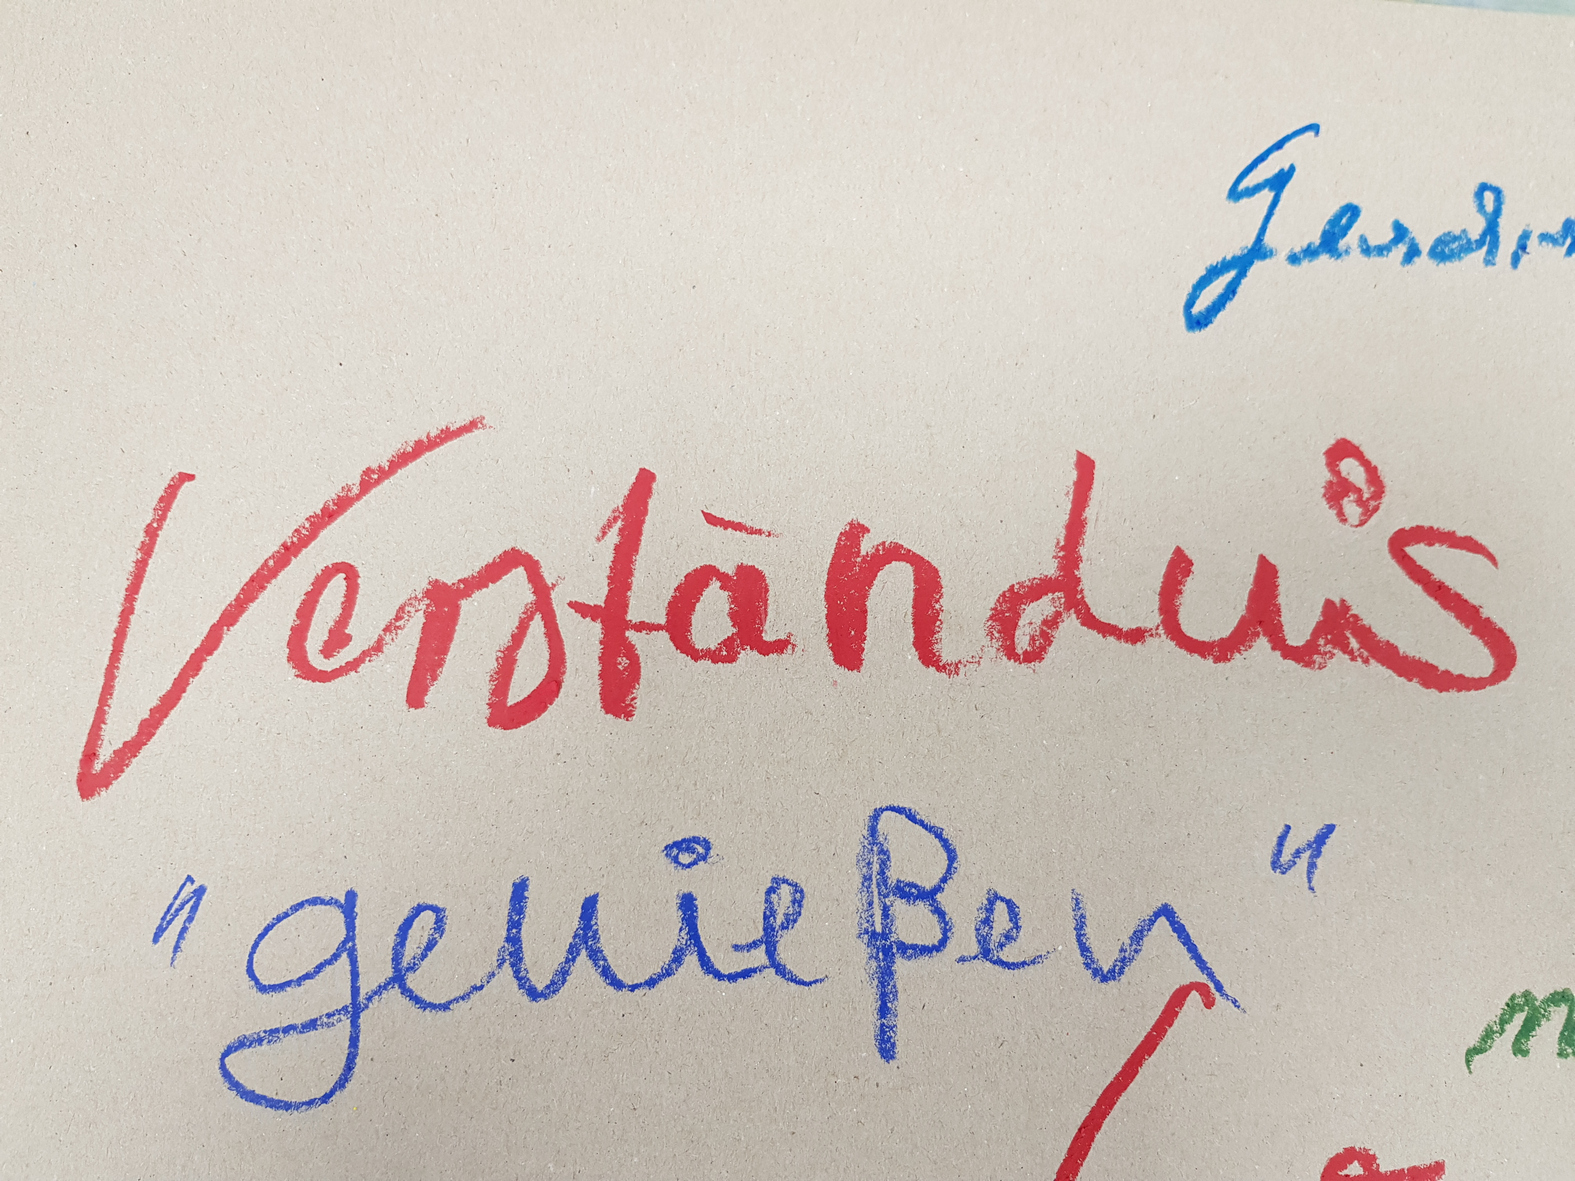 Verständnis
"genießen"